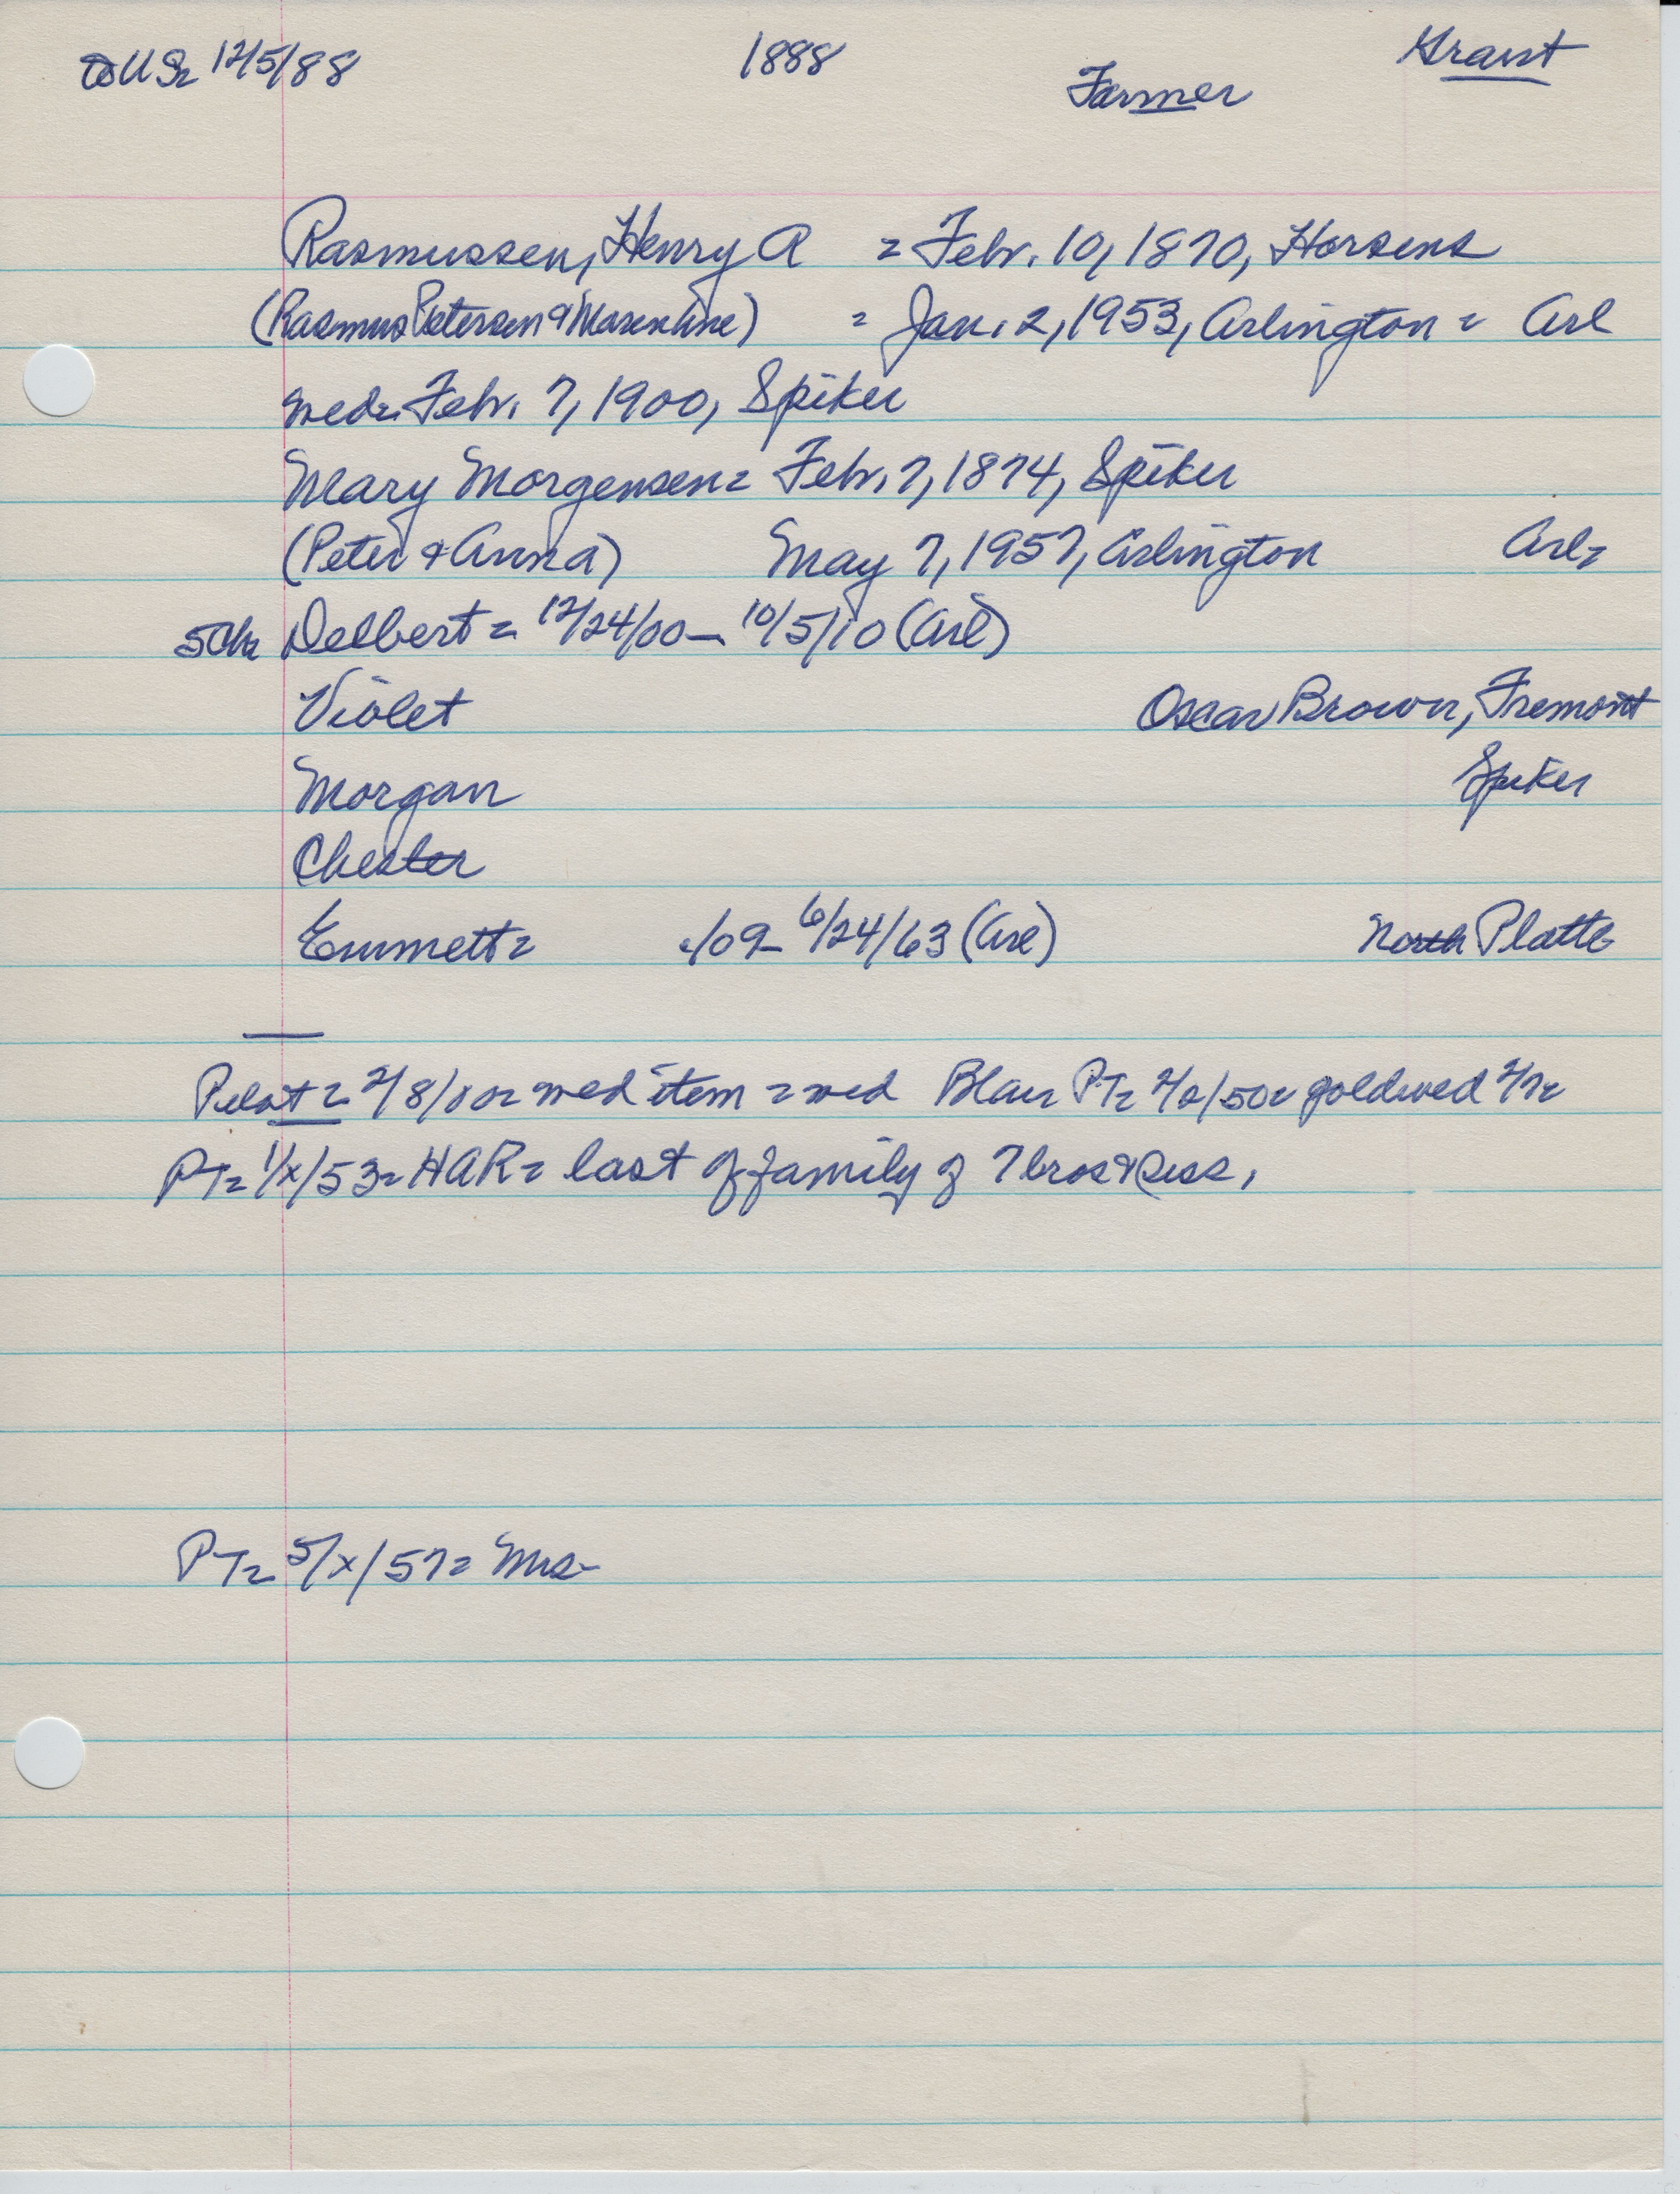 to US= 12/5/88 1888 Farmer Grant
Rasmussen, Henry A = Febr. 10, 1870, Horsens
(Rasmus Petersen & Maren Line) = Jan. 2, 1953, Arlington = Arl
wed= Febr. 7, 1900, Spiker
Mary Morgensen= Febr. 7, 1874, Spiker
(Peter & Anna) May 7, 1957, Arlington Arl=
5Ch= Delbert= 12/24/00- 10/5/10 (Arl)
Violet Oscar Brown, Fremont
Morgan Spiker
Chester
Emmett= /09- 6/24/63 (Arl) North Platte
Pilot= 2/8/00= wed item = wed Blair PT= 2/2/50= goldwed 2/7=
PT= 1/x/53= HAR= last of family of 7 bros & siss,
PT= 5/x/57= Mrs-